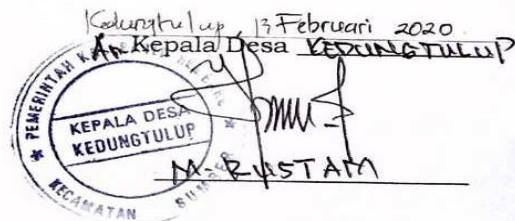 Kedungtulup, 13 Februari 2020
An Kepala Desa KEDUNGTULUP
PEMERINTAH
KEPALA DESA
KEDUNGTULUP
KECAMATAN SUMBER
M. RUSTAM